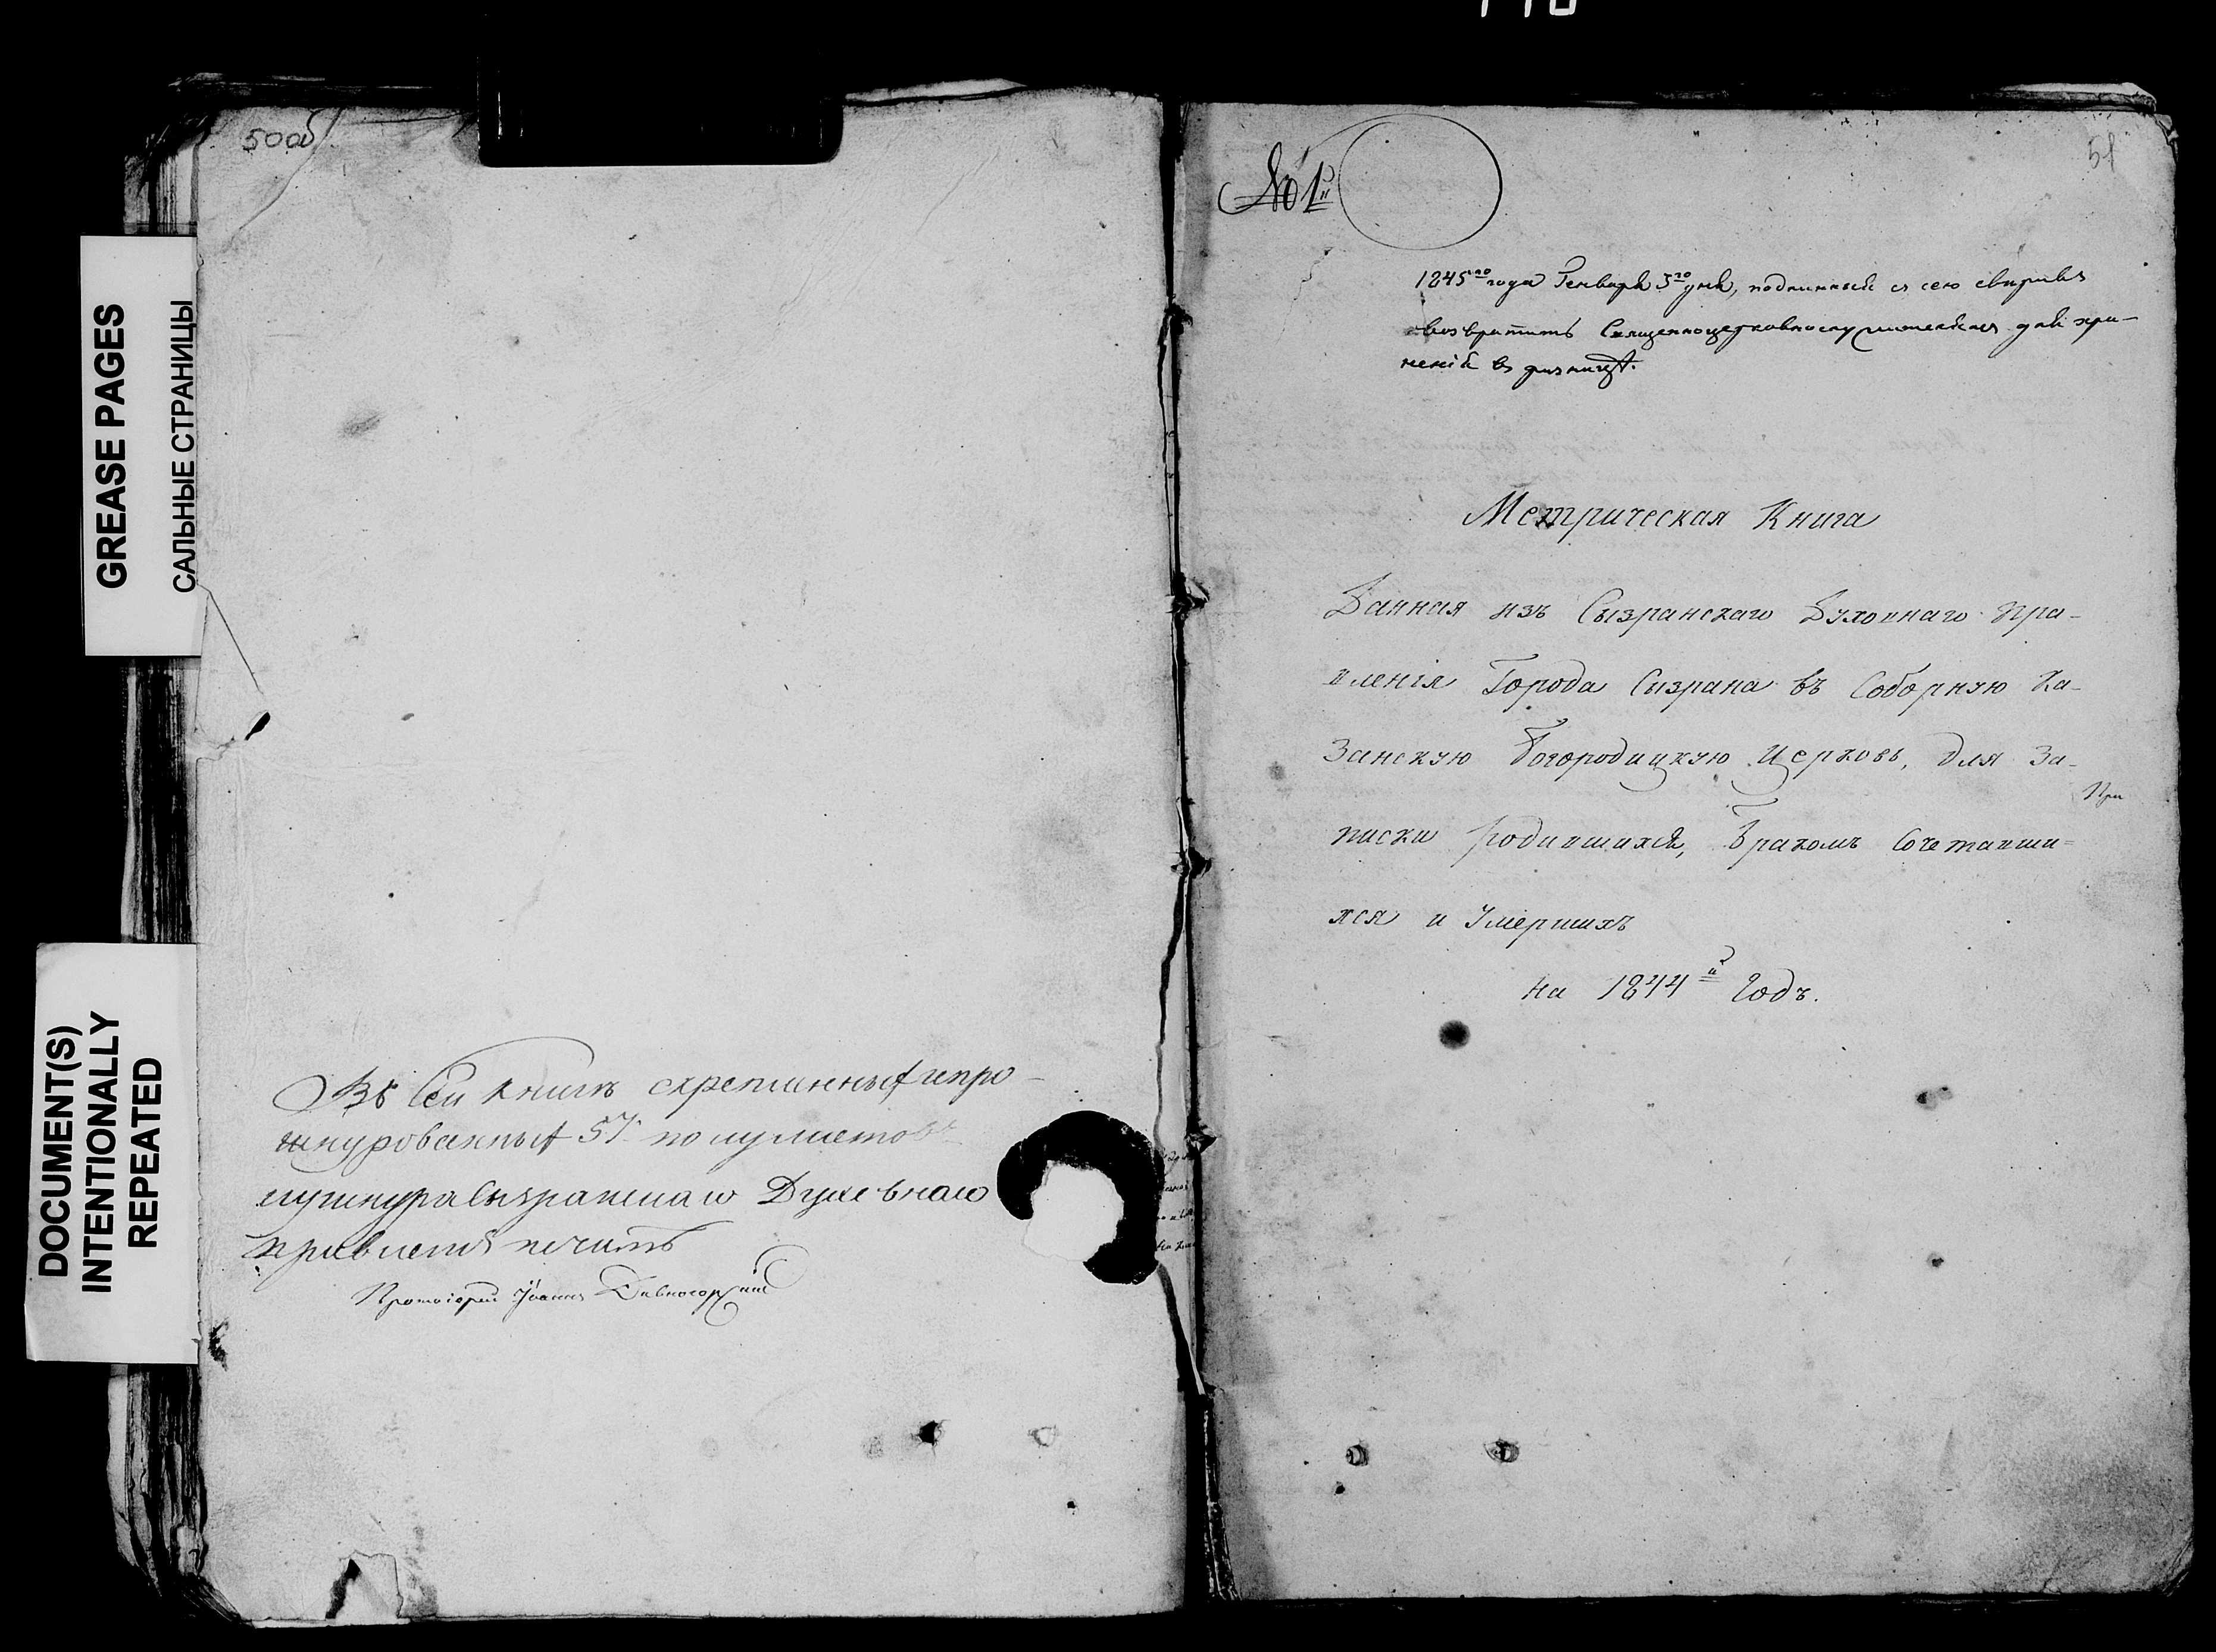 50об
GREASE PAGES
САЛЬНЫЕ СТРАНИЦЫ
DOCUMENT(S)
INTENTIONALLY
REPEATED
Въ Сей книгѣ скрепленныхъ и про-
шнурованныхъ 57 полулистовъ
у шнура Сызранскаго Духовнаго
правленія печать
Протоіерей Іоаннъ Дивногорскій
51
№ 1й
1845го года Генваря 3го дня, подлинный съ сею сверивъ
возвратить Священноцерковнослужителямъ для хра-
ненія въ ризницѣ.
Метрическая Книга
Данная изъ Сызранскаго Духовнаго Пра-
вленія Города Сызрана въ Соборную Ка-
занскую Богородицкую Церковь, для За-
писки родившихся, Бракомъ Сочетавши-
При
хся и Умершихъ
на 1844й Годъ.